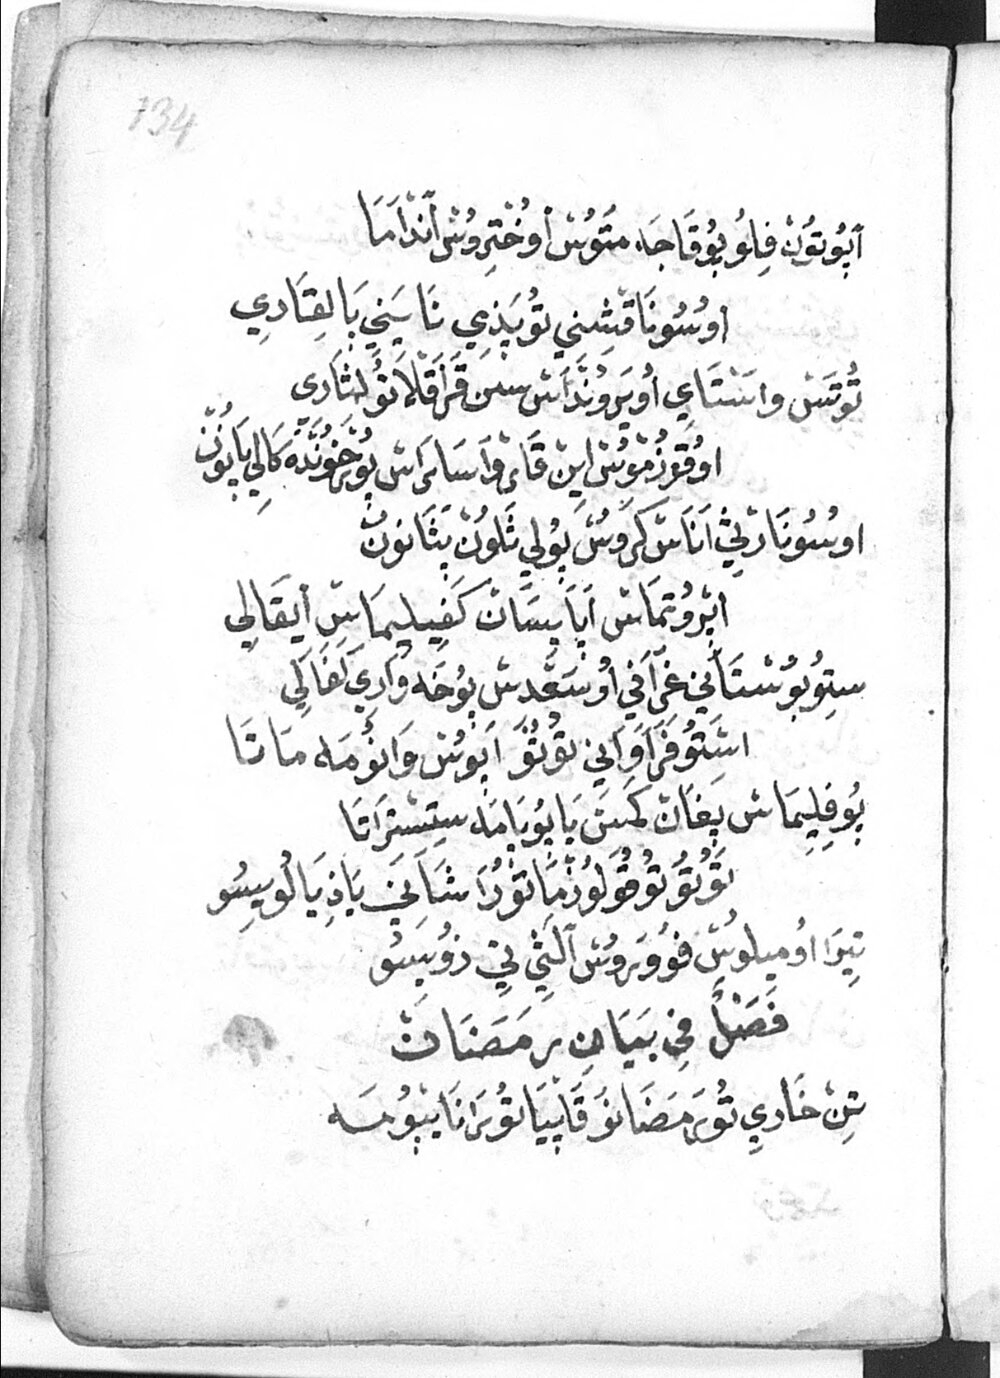 134
آپُوتُونْ فِلُو پُوقَاجَه مَتَوُسْ أُوخْتِرُوسْ آنْدَامَا
اوسُونَا قَشِنِي تُوپَذِي نَاسَنِي بَالِقِتَادِي
تُوتَسْ وَاسْتَايِ أُوپَرُونْدَاسْ سَنْ قَرَاقَلَا تُو لِثَارِی
اوُقُوزْمُوسْ اِينْ قَارْوَاسَارَاسْ پُوْرْخُونْدَه كَالِي يَاپُونْ
اوسُونَارْثِي آنَاسْ كَرُوسْ پُولِي ثَلُونْ يَثَانُونْ
اپْرُوتِمَاسْ آپَاپِسَانْ كَفِيلِيمَاسْ أَيْقَالِي
سِتُوپُوسْتَآنِي غَرَافِي أُوسَغْدِسْ پُوخَه وَارِي كَفَاكِي
اسْتُوفَرَاوَانِي تُوتُو آپُوسْ وَانُومَه مَاتَا
پُوفِلِيمَاسْ پِغَانْ كَسَنْ يَاپُوپَامَه سِتِسْتْرَاتَا
تُوتُو تُوقُولُوزْمَاتُورَا شَانِي يَاذِيَالُويسِو
تِيرَا اوُمِيلُوسْ فُووَرُوسْ آلَثِي تِي ذُوپَسُو
فَصْلٌ فِي بَيَانِ رَمَضَانْ
تِنْ خَارِي تُورَمَضَانُو قَاپْيَاتُورَانَا يَپُومَه